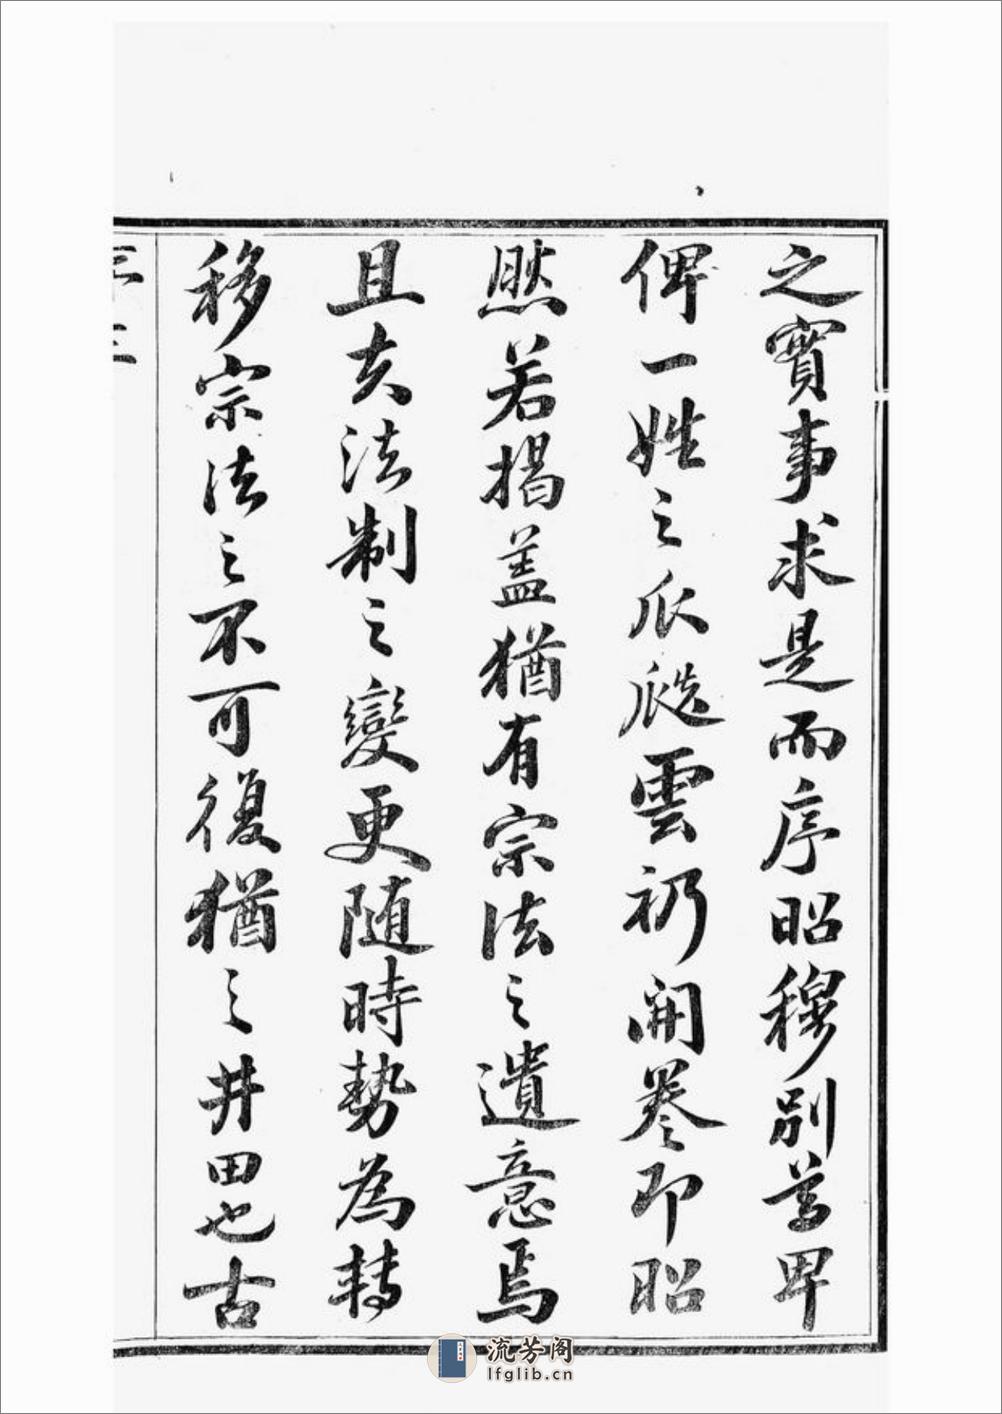 之實事求是而序昭穆別尊卑
俾一姓之瓜瓞雲礽開卷即昭
然若揭蓋猶有宗法之遺意焉
且夫法制之變更随時勢為轉
移宗法之不可復猶之井田也古
三
流芳阁
lfglib.cn